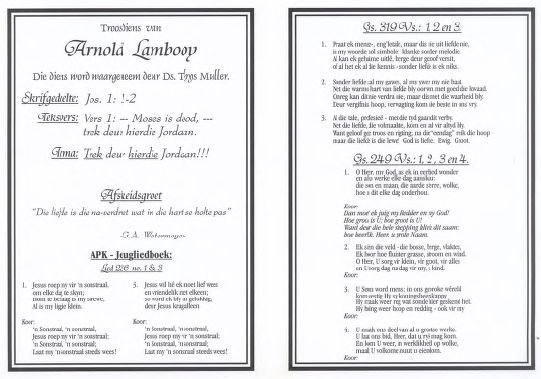 Troosdiens van
Arnold Lambooy
Die diens word waargeneem deur Ds. Thys Muller.
Skrifgedeelte: Jos. 1: 1-2
Teksvers: Vers 1: --- Moses is dood, ---
trek deur hierdie Jordaan.
Tema: Trek deur hierdie Jordaan!!!
Afskeidsgroet
"Die liefde is die na-verdriet wat in die hart se holte pas"
-G.A. Watermeyer
APK - Jeugliedboek:
Lied 226 no. 1 & 3
1. Jesus roep my vir 'n sonstraal,
om elke dag te skyn;
Al is my ligie klein.
Koor:
'n Sonstraal, 'n sonstraal,
Jesus roep my vir 'n sonstraal,
'n Sonstraal, 'n sonstraal,
Laat my 'n sonstraal steeds wees!
3. Jesus wil hê ek moet lief wees
en vriendelik net elkeen;
so word ek bly en gelukkig,
deur Jesus kragalleen
Koor:
'n Sonstraal, 'n sonstraal,
Jesus roep my vir 'n sonstraal,
'n Sonstraal, 'n sonstraal,
Laat my 'n sonstraal steeds wees!
Gs. 319 Vs.: 1, 2 en 3.
1. Praat ek mense-, eng'letale, maar dis nie uit liefde nie,
is my woorde sol simbole: klanke sonder melodie
Al kan ek geheime uitlê, berge deur geloof versit,
of al het ek al die kennis - sonder liefde is ek niks.
2. Sonder liefde: al my gawes, al my ywer my nie baat.
Net die warmte hart van liefde bly oorwin met goed die kwaad.
Onreg kan dit nie verdra nie, maar dis met die waarheid bly.
Deur vergifnis hoop, vertroosting kom die beste in ons vry.
3. Al die tale, profesieë - met die tyd gaan dit verby.
Net die liefde, die volmaakte, kom en al vir altyd bly.
Want geloof gee troos en rigting; na die "eendag" reik die hoop
maar die liefde is die lewe! God is liefde. Ewig. Groot.
Gs. 249 Vs.: 1, 2, 3 en 4.
1. O Heer, my God, as ek in eerbied wonder
en al u werke elke dag aanskou:
die son en maan, die aarde, sterre, wolke,
hoe u dit elke dag onderhou.
Koor:
Dan moet ek juig my Redder en my God!
Hoe groot is U; hoe groot is U!
Want deur die hele skepping klink dit saam:
hoe heerlik, Heer, u grote Naam.
2. Ek sien die veld - die bosse, berge, vlaktes,
Ek hoor hoe fluister grasse, stroom en wind.
O Heer, U sorg vir klein, vir groot, vir alles
en U sorg dag na dag vir my, u kind.
Koor:
3. U Seun word mens: in ons geroke wêreld
Hy maak weer reg wat sonde hier geskend het.
Hy bring weer hoop en redding - ook vir my
Koor:
4. U maak ons deel van al u grootse werke.
U laat ons bid, Heer, dat u ryk mag kom.
En kom U weer, in werklikheid op wolke,
maak U volkome nuut u eiendom.
Koor: